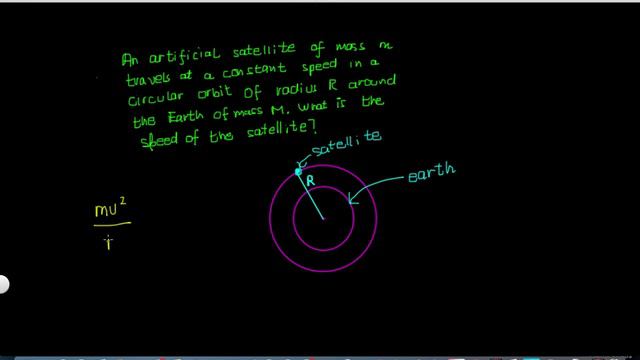 An artificial satellite of mass m
travels at a constant speed in a
circular orbit of radius R around
the Earth of mass M. What is the
speed of the satellite?
satellite
R
earth
mv²